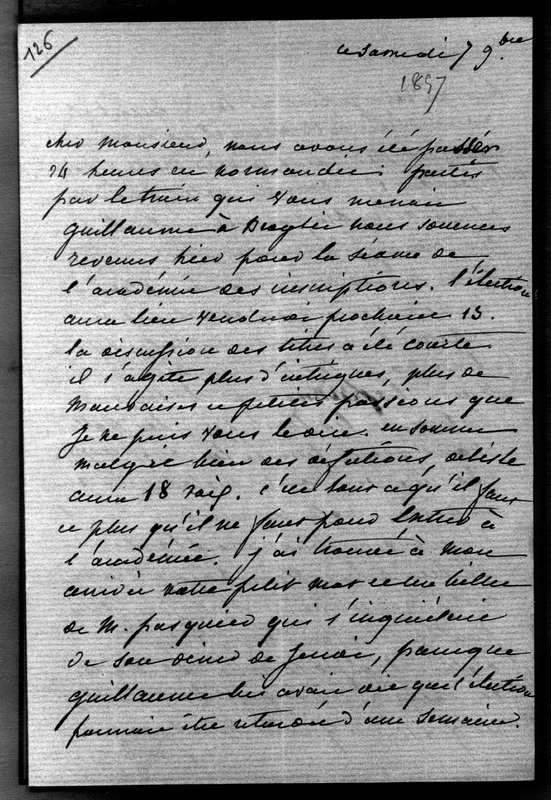 126
ce samedi 7 9bre
1857
cher monsieur, nous avons été passer
24 heures en normandie; partis
par le train qui vous menait
guillaume à Broglie nous sommes
revenus hier pour la séance de
l'académie des inscriptions. l'élection
aura lieu vendredi prochain 13.
la discussion des titres a été courte
il s'agite plus d'intrigues, plus de
mauvaises et petites passions que
je ne puis vous le dire. en somme
malgré bien des défections,
aura 18 voix. c'est tout ce qu'il faut
et plus qu'il ne faut pour entrer à
l'académie. j'ai trouvé à mon
arrivée votre petit mot et un billet
de M. pasquier qui s'inquiétait
de son diner de jeudi, parceque
guillaume lui avait dit que l'élection
pourrait être retardée d'une semaine.